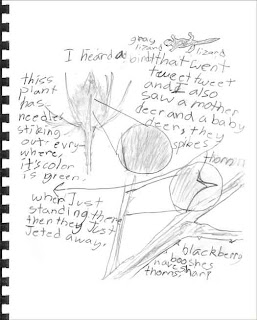 gray
lizard
lizard
I heard a bird that went
tweet tweet
and I also
saw a mother
deer and a baby
deer, they
spikes
thiss
plant
has
needles
stiking
oute evry
where,
it's color
is green.
thorn
when Just
standing there
then they Just
Jeted away.
blackberry
booshes
have sharp
thorns.